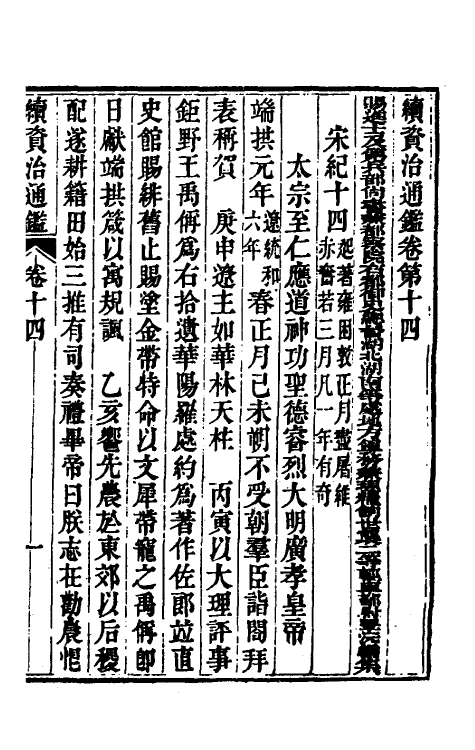 續資治通鑑卷第十四
賜進士及第兵部尚書兼都察院右都御史總督湖北湖南等處地方軍務兼理糧餉世襲二等輕車都尉畢沅編集
宋紀十四起著雍困敦正月盡屠維赤奮若三月凡一年有奇
太宗至仁應道神功聖德睿烈大明廣孝皇帝
端拱元年遼統和六年春正月己未朔不受朝羣臣詣閤拜
表稱賀 庚申遼主如華林天柱 丙寅以大理評事
鉅野王禹偁爲右拾遺華陽羅處約爲著作佐郎竝直
史館賜緋舊止賜塗金帶特命以文犀帶寵之禹偁卽
日獻端拱箴以寓規諷 乙亥饗先農於東郊以后稷
配遂耕籍田始三推有司奏禮畢帝曰朕志在勸農恨
續資治通鑑 卷十四 一